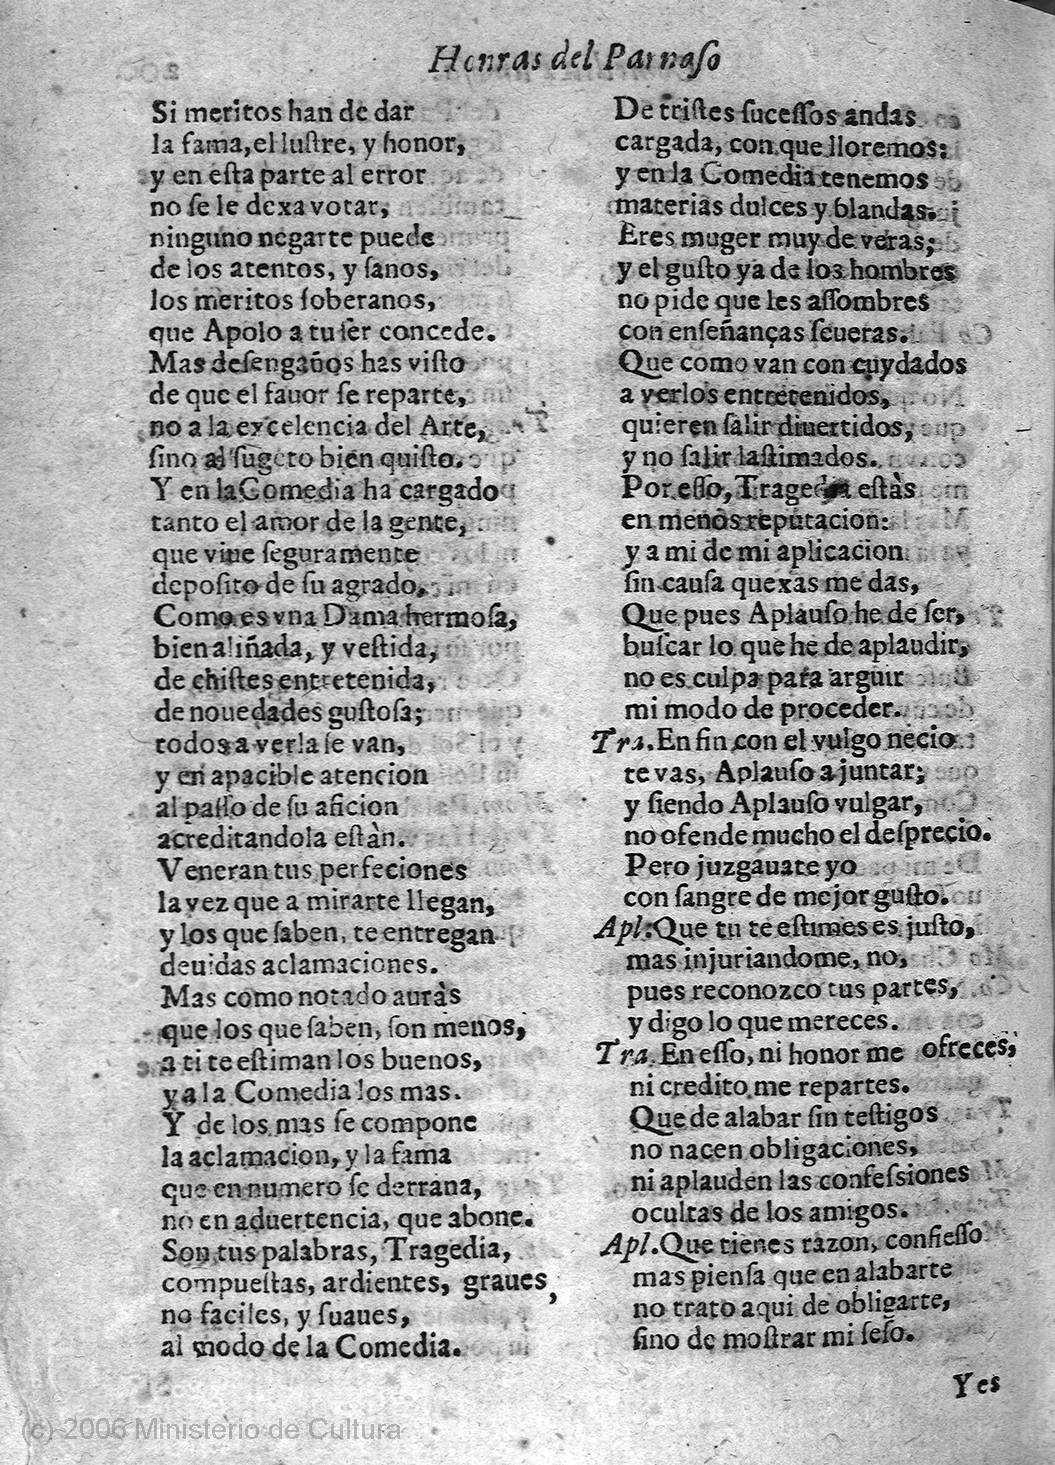 Honras del Parnaſo
Si meritos han de dar
la fama, el luſtre, y honor,
y en eſta parte al error
no ſe le dexa votar,
ninguno negarte puede
de los atentos, y ſanos,
los meritos ſoberanos,
que Apolo a tu ſer concede.
Mas deſengaños has viſto
de que el fauor ſe reparte,
no a la excelencia del Arte,
ſino al ſugeto bien quiſto.
Y en la Comedia ha cargado
tanto el amor de la gente,
que viue ſeguramente
depoſito de ſu agrado,
Como es vna Dama hermoſa,
bien aliñada, y veſtida,
de chiſtes entretenida,
de nouedades guſtoſa;
todos a verla ſe van,
y en apacible atencion
al paſſo de ſu aficion
acreditandola eſtàn.
Veneran tus perfeciones
la vez que a mirarte llegan,
y los que ſaben, te entregan
deuidas aclamaciones.
Mas como notado auràs
que los que ſaben, ſon menos,
a ti te eſtiman los buenos,
y a la Comedia los mas.
Y de los mas ſe compone
la aclamacion, y la fama
que en numero ſe derrama,
no en aduertencia, que abone.
Son tus palabras, Tragedia,
compueſtas, ardientes, graues,
no faciles, y ſuaues,
al modo de la Comedia.
De triſtes ſuceſſos andas
cargada, con que lloremos:
y en la Comedia tenemos
materias dulces y blandas.
Eres muger muy de veras;
y el guſto ya de los hombres
no pide que les aſſombres
con enſeñanças ſeueras.
Que como van con cuydados
a verlos entretenidos,
quieren ſalir diuertidos,
y no ſalir laſtimados.
Por eſſo, Tragedia eſtàs
en menos reputacion:
y a mi de mi aplicacion
ſin cauſa quexas me das,
Que pues Aplauſo he de ſer,
buſcar lo que he de aplaudir,
no es culpa para arguir
mi modo de proceder.
Tra. En fin con el vulgo necio
te vas, Aplauſo a juntar;
y ſiendo Aplauſo vulgar,
no ofende mucho el deſprecio.
Pero juzgauate yo
con ſangre de mejor guſto.
Apl. Que tu te eſtimes es juſto,
mas injuriandome, no,
pues reconozco tus partes,
y digo lo que mereces.
Tra. En eſſo, ni honor me ofreces,
ni credito me repartes.
Que de alabar ſin teſtigos
no nacen obligaciones,
ni aplauden las confeſsiones
ocultas de los amigos.
Apl. Que tienes razon, confieſſo
mas pienſa que en alabarte
no trato aqui de obligarte,
ſino de moſtrar mi ſeſo.
Yes
(c) 2006 Ministerio de Cultura